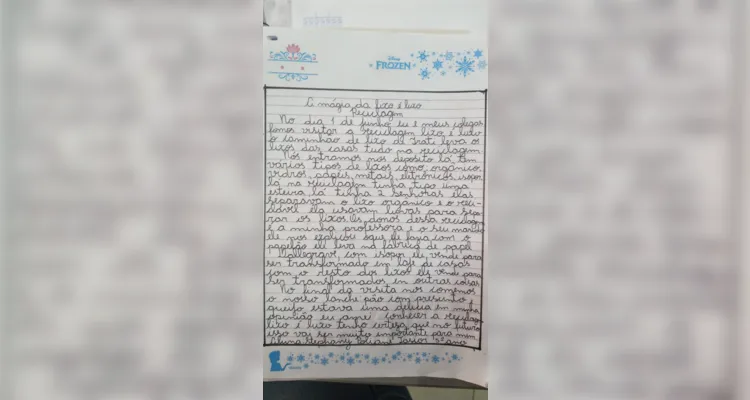 Disney
FROZEN
A mágia da lixo é luxo
Reciclagem
No dia 1 de junho eu e meus colegas
fomos visitar a reciclagem lixo é luxo
o caminhão de lixo de Irati leva os
lixos das casas tudo na reciclagem.
Nós entramos nos deposito lá tem
vários tipos de lixos como, orgânico,
vidros, papéis, metais, eletrônicos, isopor,
lá na reciclagem tinha tipo uma
esteira lá tinha 2 senhoras elas
separavam o lixo orgânico e o reci-
clável ela usavam luvas para sepa-
rar os lixos. Os donos dessa reciclagem
é a minha professora e o seu marido
ele nos explicou oque ele fazia com o
papelão ele leva na fábrica de papel
com isopor ele vende para
ser transformado em laje de casas
com o resto dos lixos ele vende para
ser transformados em outras coisas
No final da visita nos comemos
o nosso lanche pão com presunto e
queijo estava uma delicia em minha
opinião eu amei conhecer a reciclagem
lixo é luxo tenho certesa que no futuro
isso vai ser muito importante para mim
Aluna Stephany 5º ano